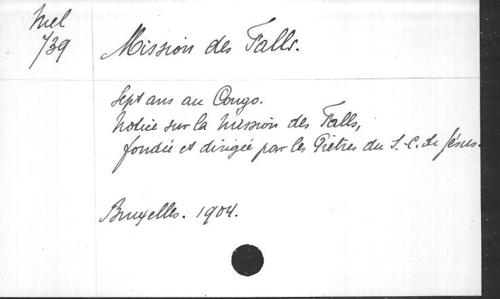 Mel
739
Mission des Falls.
Sept ans au Congo.
Notice sur la Mission des Falls,
fondée et dirigée par les Prêtres du S.-C. de Jésus.
Bruxelles. 1904.